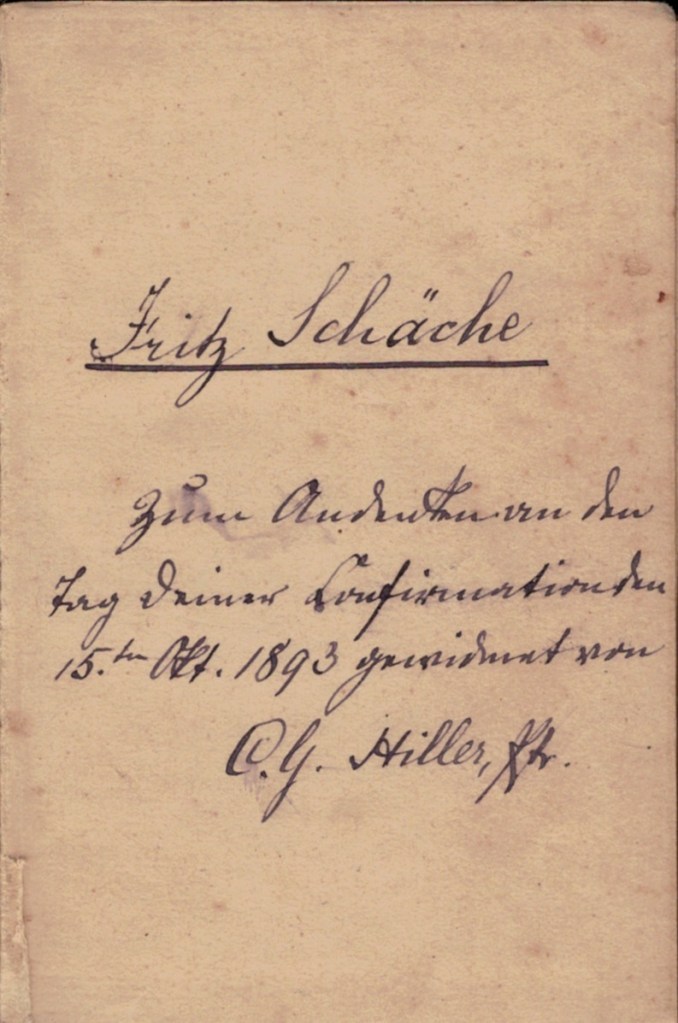 Fritz Schäche
Zum Andenken an den
Tag Deiner Confirmation den
15.ten Okt. 1893 gewidmet von
C. G. Hiller, Pstr.